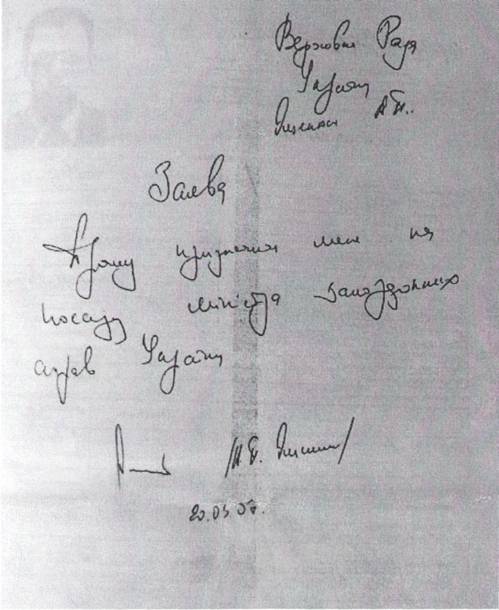 Верховна Рада
України
Яценюк А.П.
Заява
Прошу призначити мене на
посаду міністра закордонних
справ України
/А.П. Яценюк/
20.03.07.